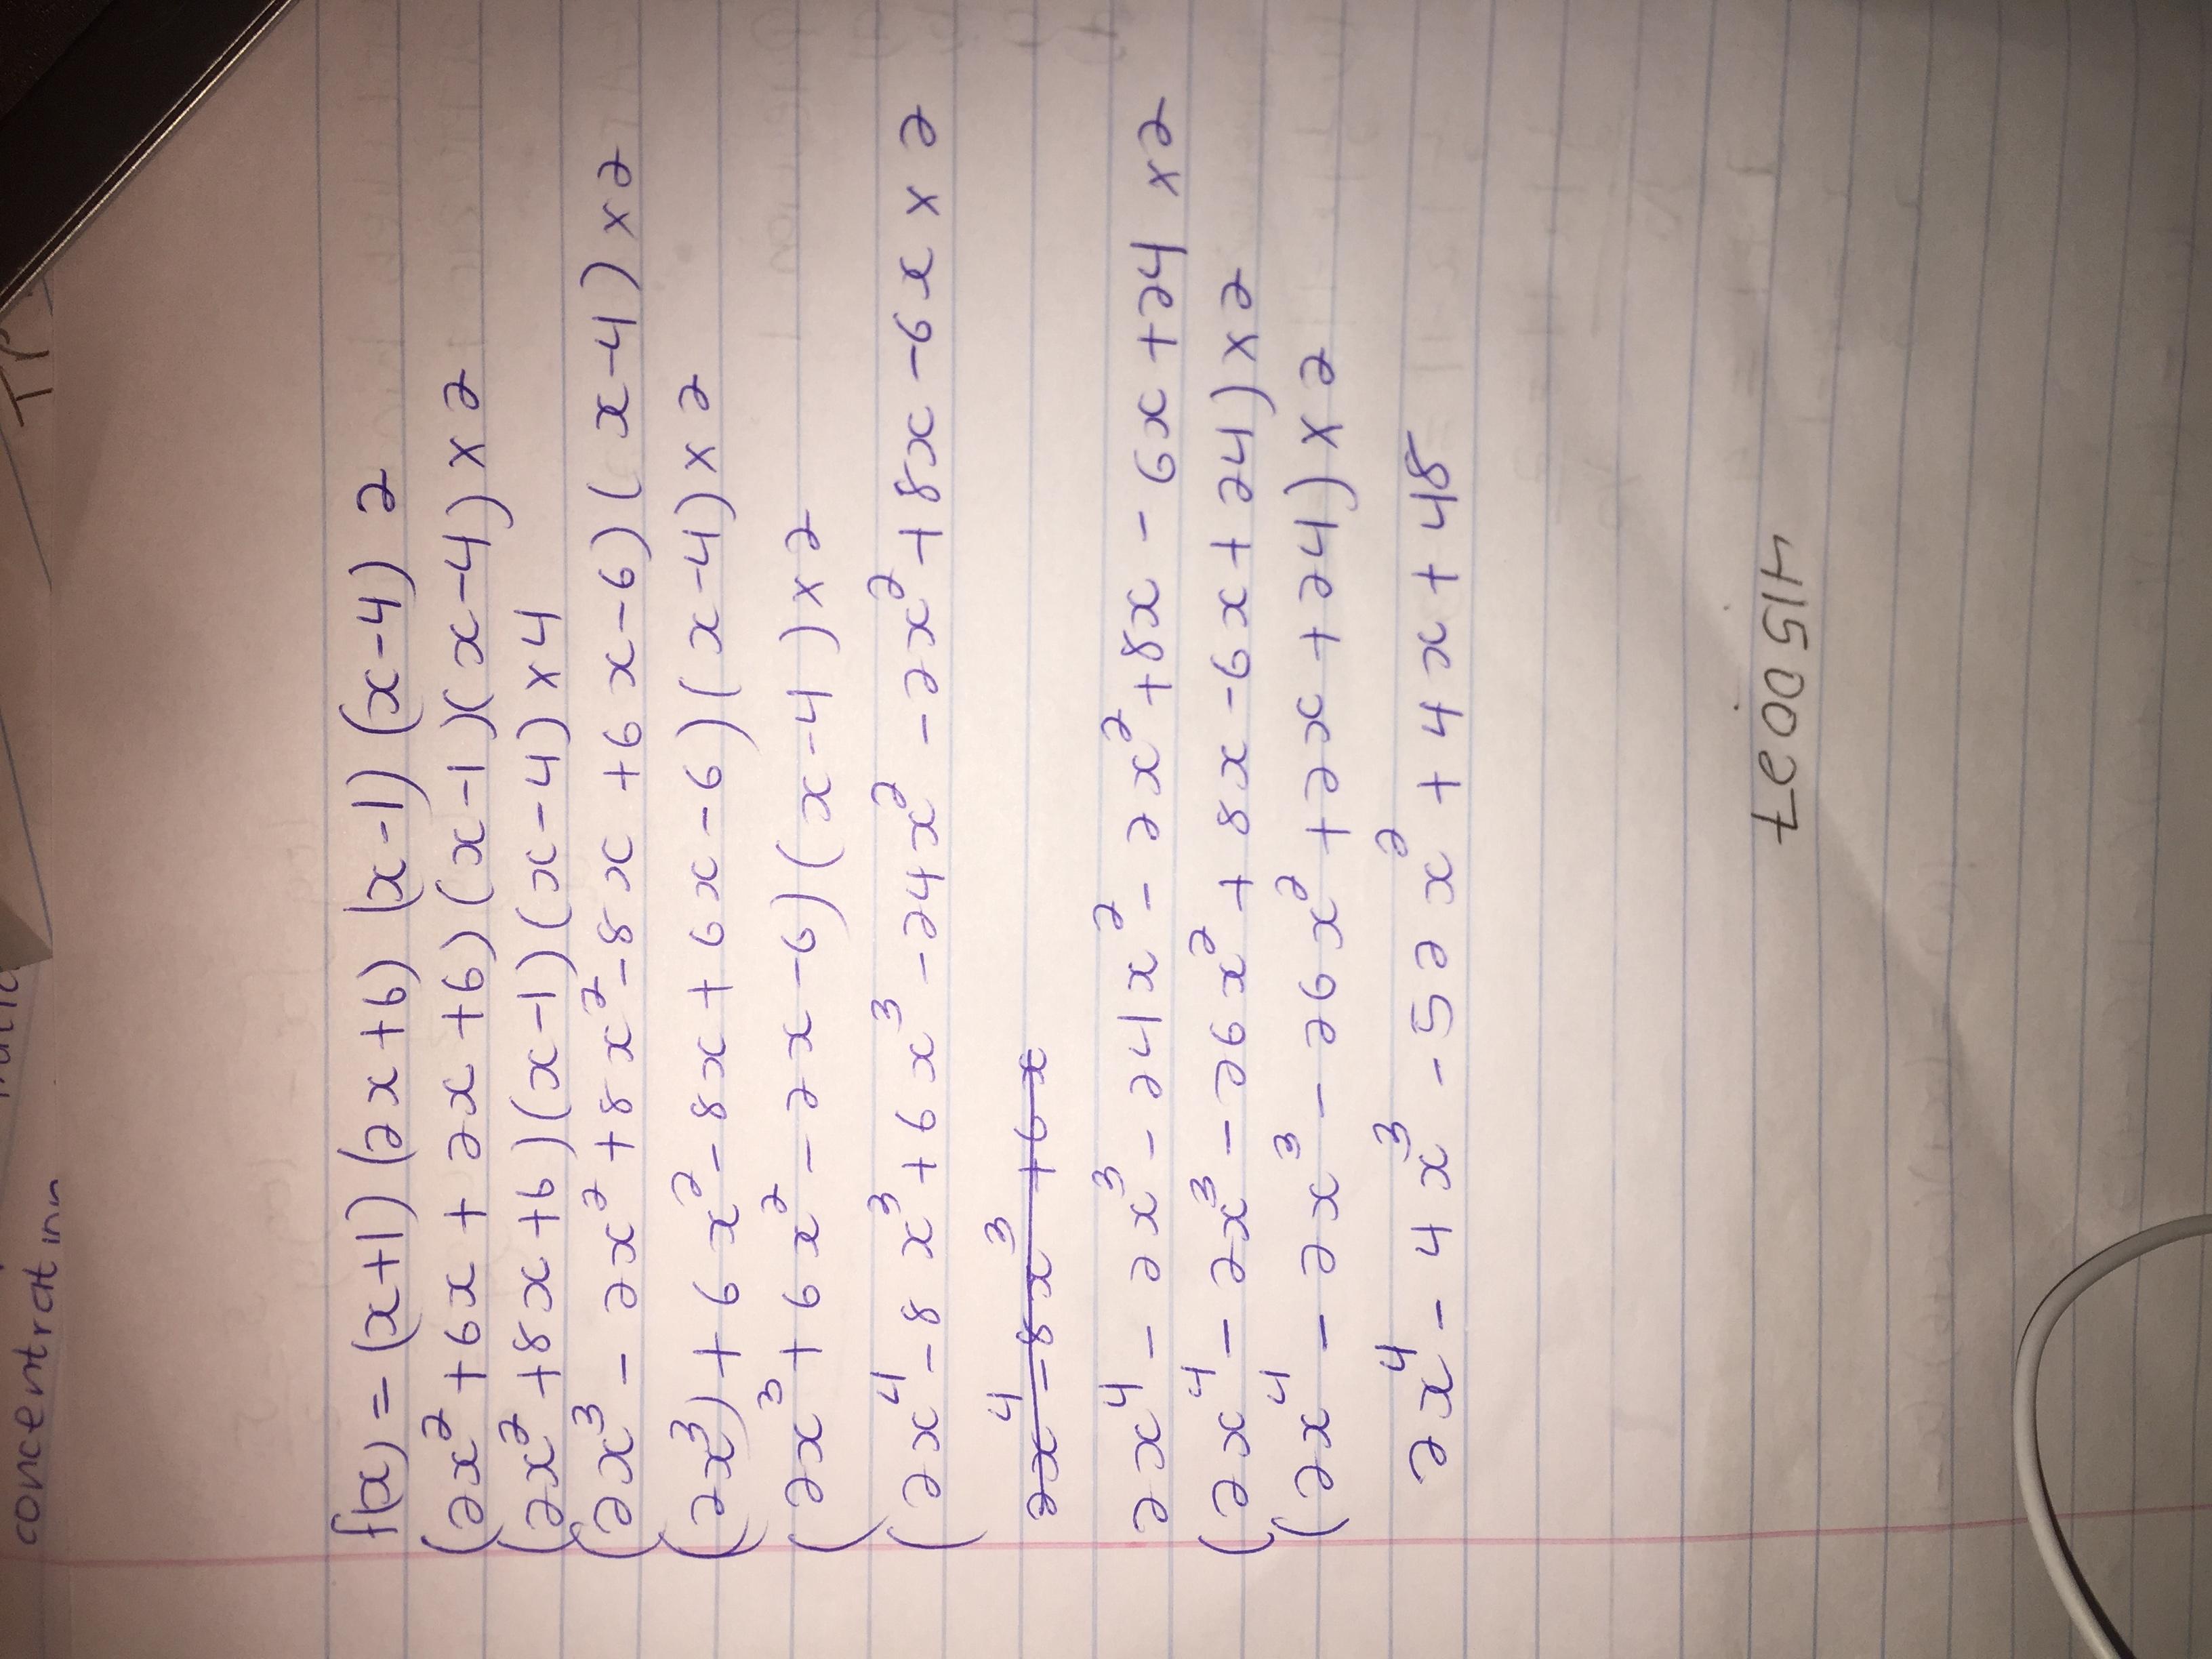 concentration
f(x) = (x+1) (2x+6) (x-1) (x-4) 2
(2x² +6x + 2x +6) (x-1)(x-4) x2
(2x² +8x +6)(x-1)(x-4) x4
(2x³ - 2x² +8x² -8x +6x-6) (x-4) x2
(2x³) +6x² -8x +6x-6)(x-4)x2
(2x³ +6x² -2x-6)(x-4)x2
(2x⁴ -8x³ +6x³ -24x² -2x² +8x -6x x2
2x⁴ -8x³ +6x
2x⁴ - 2x³ - 24x² - 2x² +8x - 6x +24 x2
(2x⁴ - 2x³ - 26x² + 8x -6x +24) x2
(2x⁴ - 2x³ - 26x² +2x +24) x2
2x⁴ - 4x³ -52x² +4x +48
4150027